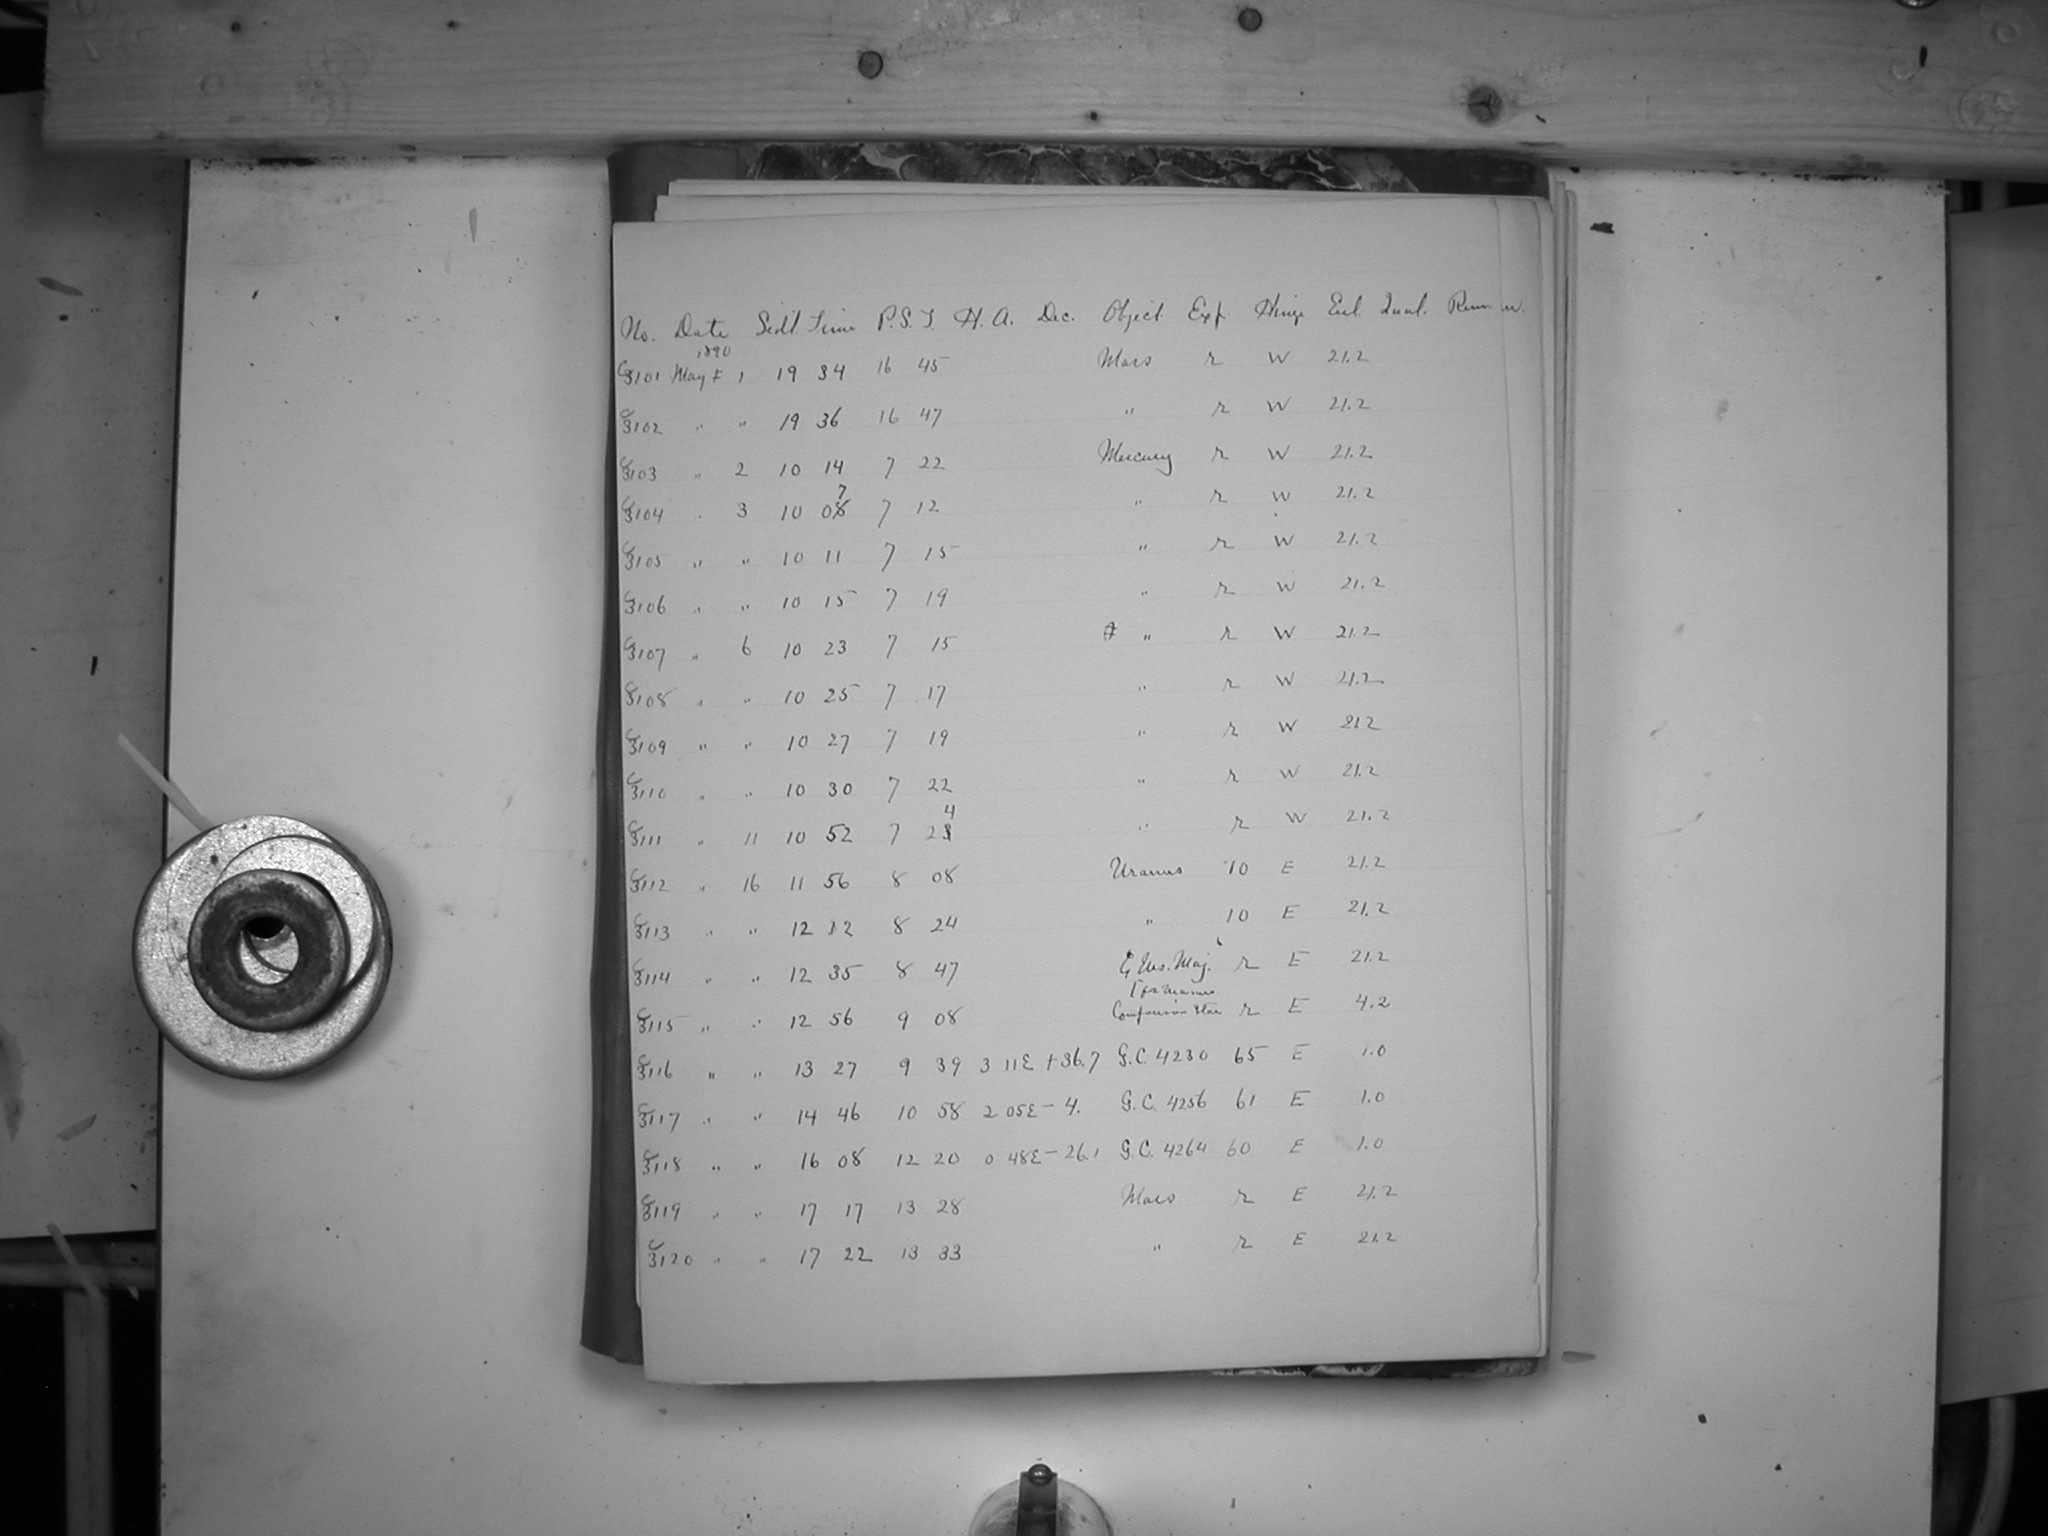 No. Date Sidl. Time P.S.T. H.A. Dec. Object Exp. Hinge Eul. Qual. Rem
1890
C 3101 May 1 19 34 16 45 Mars r W 21.2
C 3102 " " 19 36 16 47 " r W 21.2
C 3103 " 2 10 14 7 22 Mercury r W 21.2
7
C 3104 " 3 10 08 7 12 " r W 21.2
C 3105 " " 10 11 7 15 " r W 21.2
C 3106 " " 10 15 7 19 " r W 21.2
C 3107 " 6 10 23 7 15 " r W 21.2
C 3108 " " 10 25 7 17 " r W 21.2
C 3109 " " 10 27 7 19 " r W 21.2
C 3110 " " 10 30 7 22 " r W 21.2
4
C 3111 " 11 10 52 7 23 " r W 21.2
C 3112 " 16 11 56 8 08 Uranus 10 E 21.2
C 3113 " " 12 12 8 24 " 10 E 21.2
C 3114 " " 12 35 8 47 ζ Urs. Maj. r E 21.2
for Uranus
C 3115 " " 12 56 9 08 Comparison Star r E 4.2
C 3116 " " 13 27 9 39 3 11E +36.7 G.C. 4230 65 E 1.0
C 3117 " " 14 46 10 58 2 05E - 4. G.C. 4256 61 E 1.0
C 3118 " " 16 08 12 20 0 48E - 26.1 G.C. 4264 60 E 1.0
C 3119 " " 17 17 13 28 Mars r E 21.2
C 3120 " " 17 22 13 33 " r E 21.2